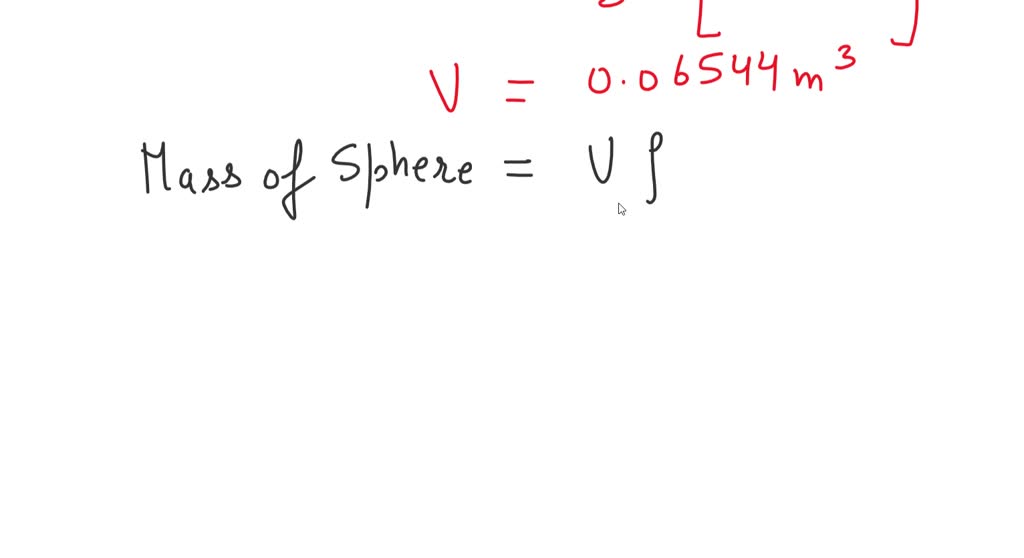 [ ]
V = 0.06544 m³
Mass of Sphere = V ρ